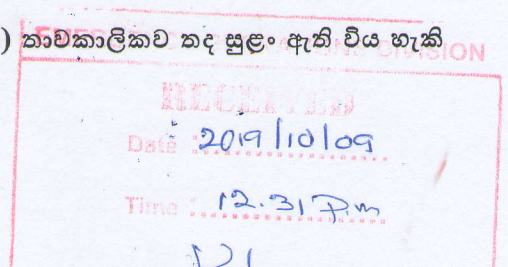 ) තාවකාලිකව තද සුළං ඇති විය හැකි
DIVISION
RECEIVED
Date : 2019/10/09
Time : 12.31 P.m